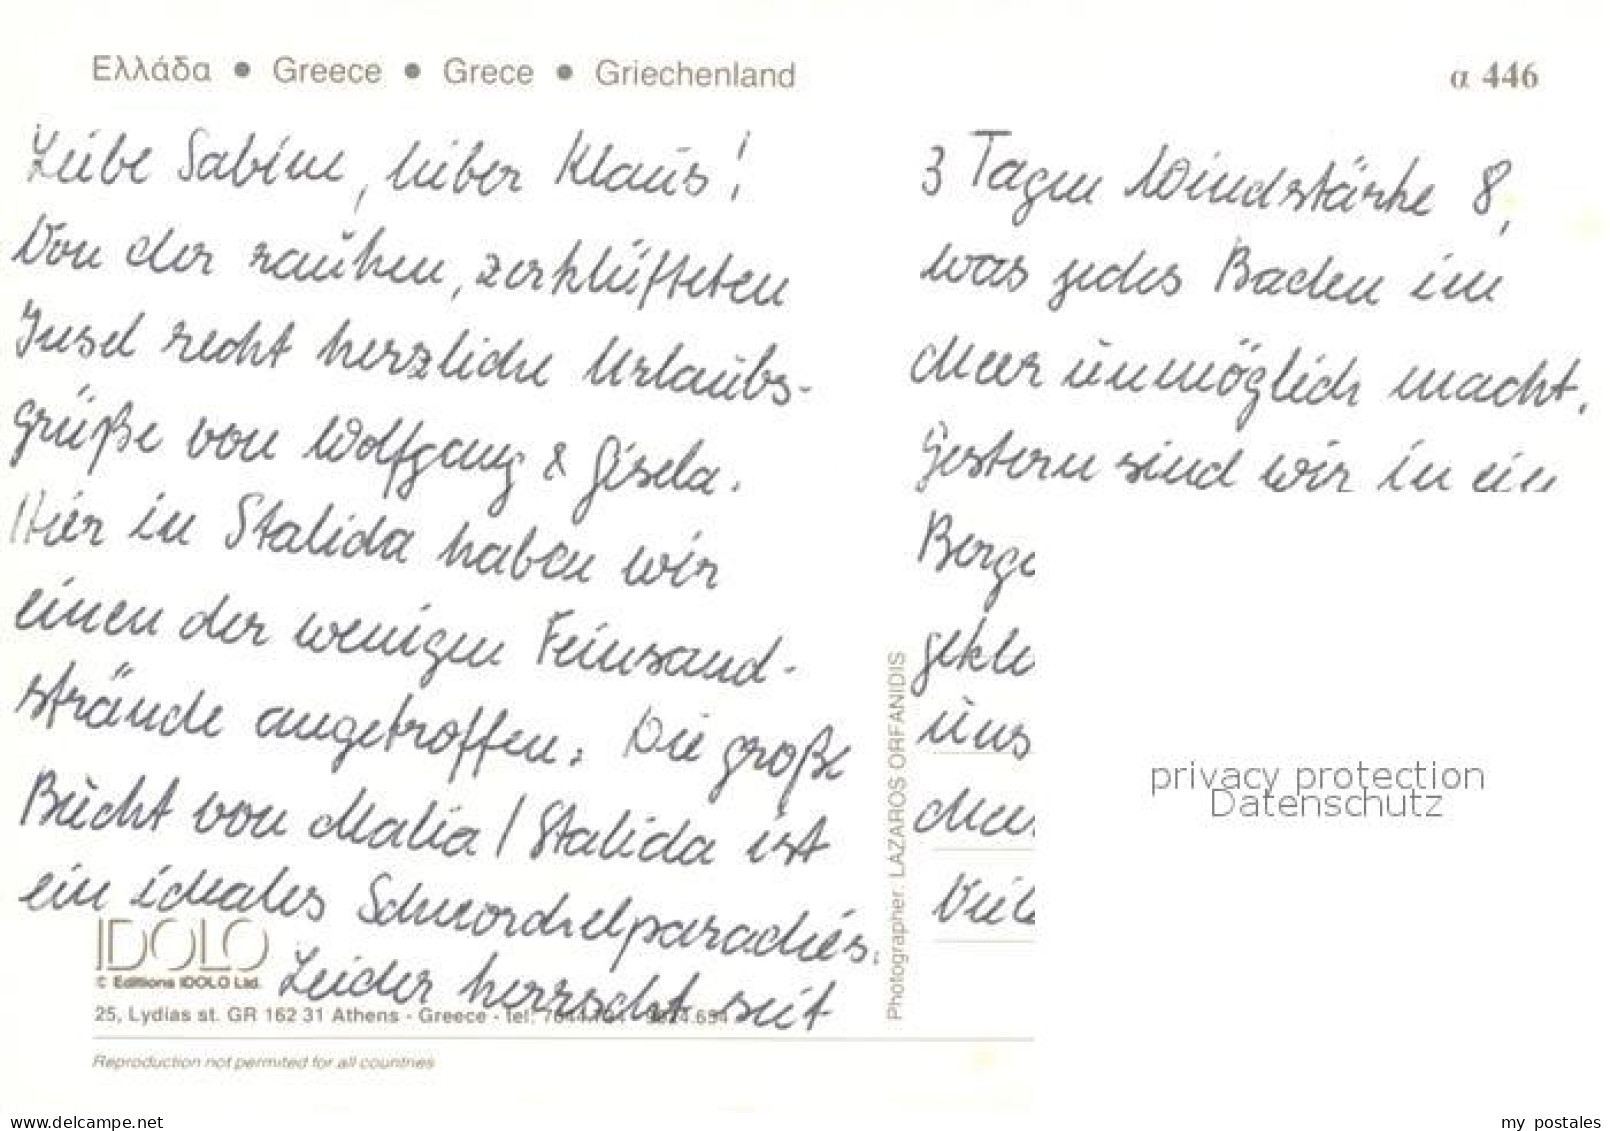 Ελλάδα • Greece • Grece • Griechenland
α 446
Liebe Sabine, lieber Klaus!
Von der rauhen, zerklüfteten
Insel recht herzliche Urlaubs-
grüße von Wolfgang & Gisela.
Hier in Stalida haben wir
einen der wenigen Feinsand-
strände angetroffen. Die große
Bucht von Malia / Stalida ist
ein ideales Schnorchelparadies.
Leider herrscht seit
3 Tagen Windstärke 8,
was jedes Baden im
Meer unmöglich macht.
Gestern sind wir in ein
Berg
gekl
uns
Viel
IDOLO
© Editions IDOLO Ltd.
25, Lydias st. GR 162 31 Athens - Greece - tel.
Reproduction not permited for all countries
Photographer: LAZAROS ORFANIDIS
privacy protection
Datenschutz
www.delcampe.net
my_postales